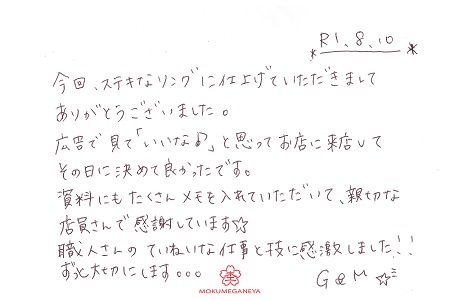 R1.8.10
今回、ステキなリングに仕上げていただきまして
ありがとうございました。
広告で見て「いいなぁ♪」と思ってお店に来店して
その日に決めて良かったです。
資料にもたくさんメモを入れていただいて、親切な
店員さんで感謝しています☆
職人さんのていねいな仕事と技に感激しました!!
ずっと大切にします。。。
G&M ☆
MOKUMEGANEYA